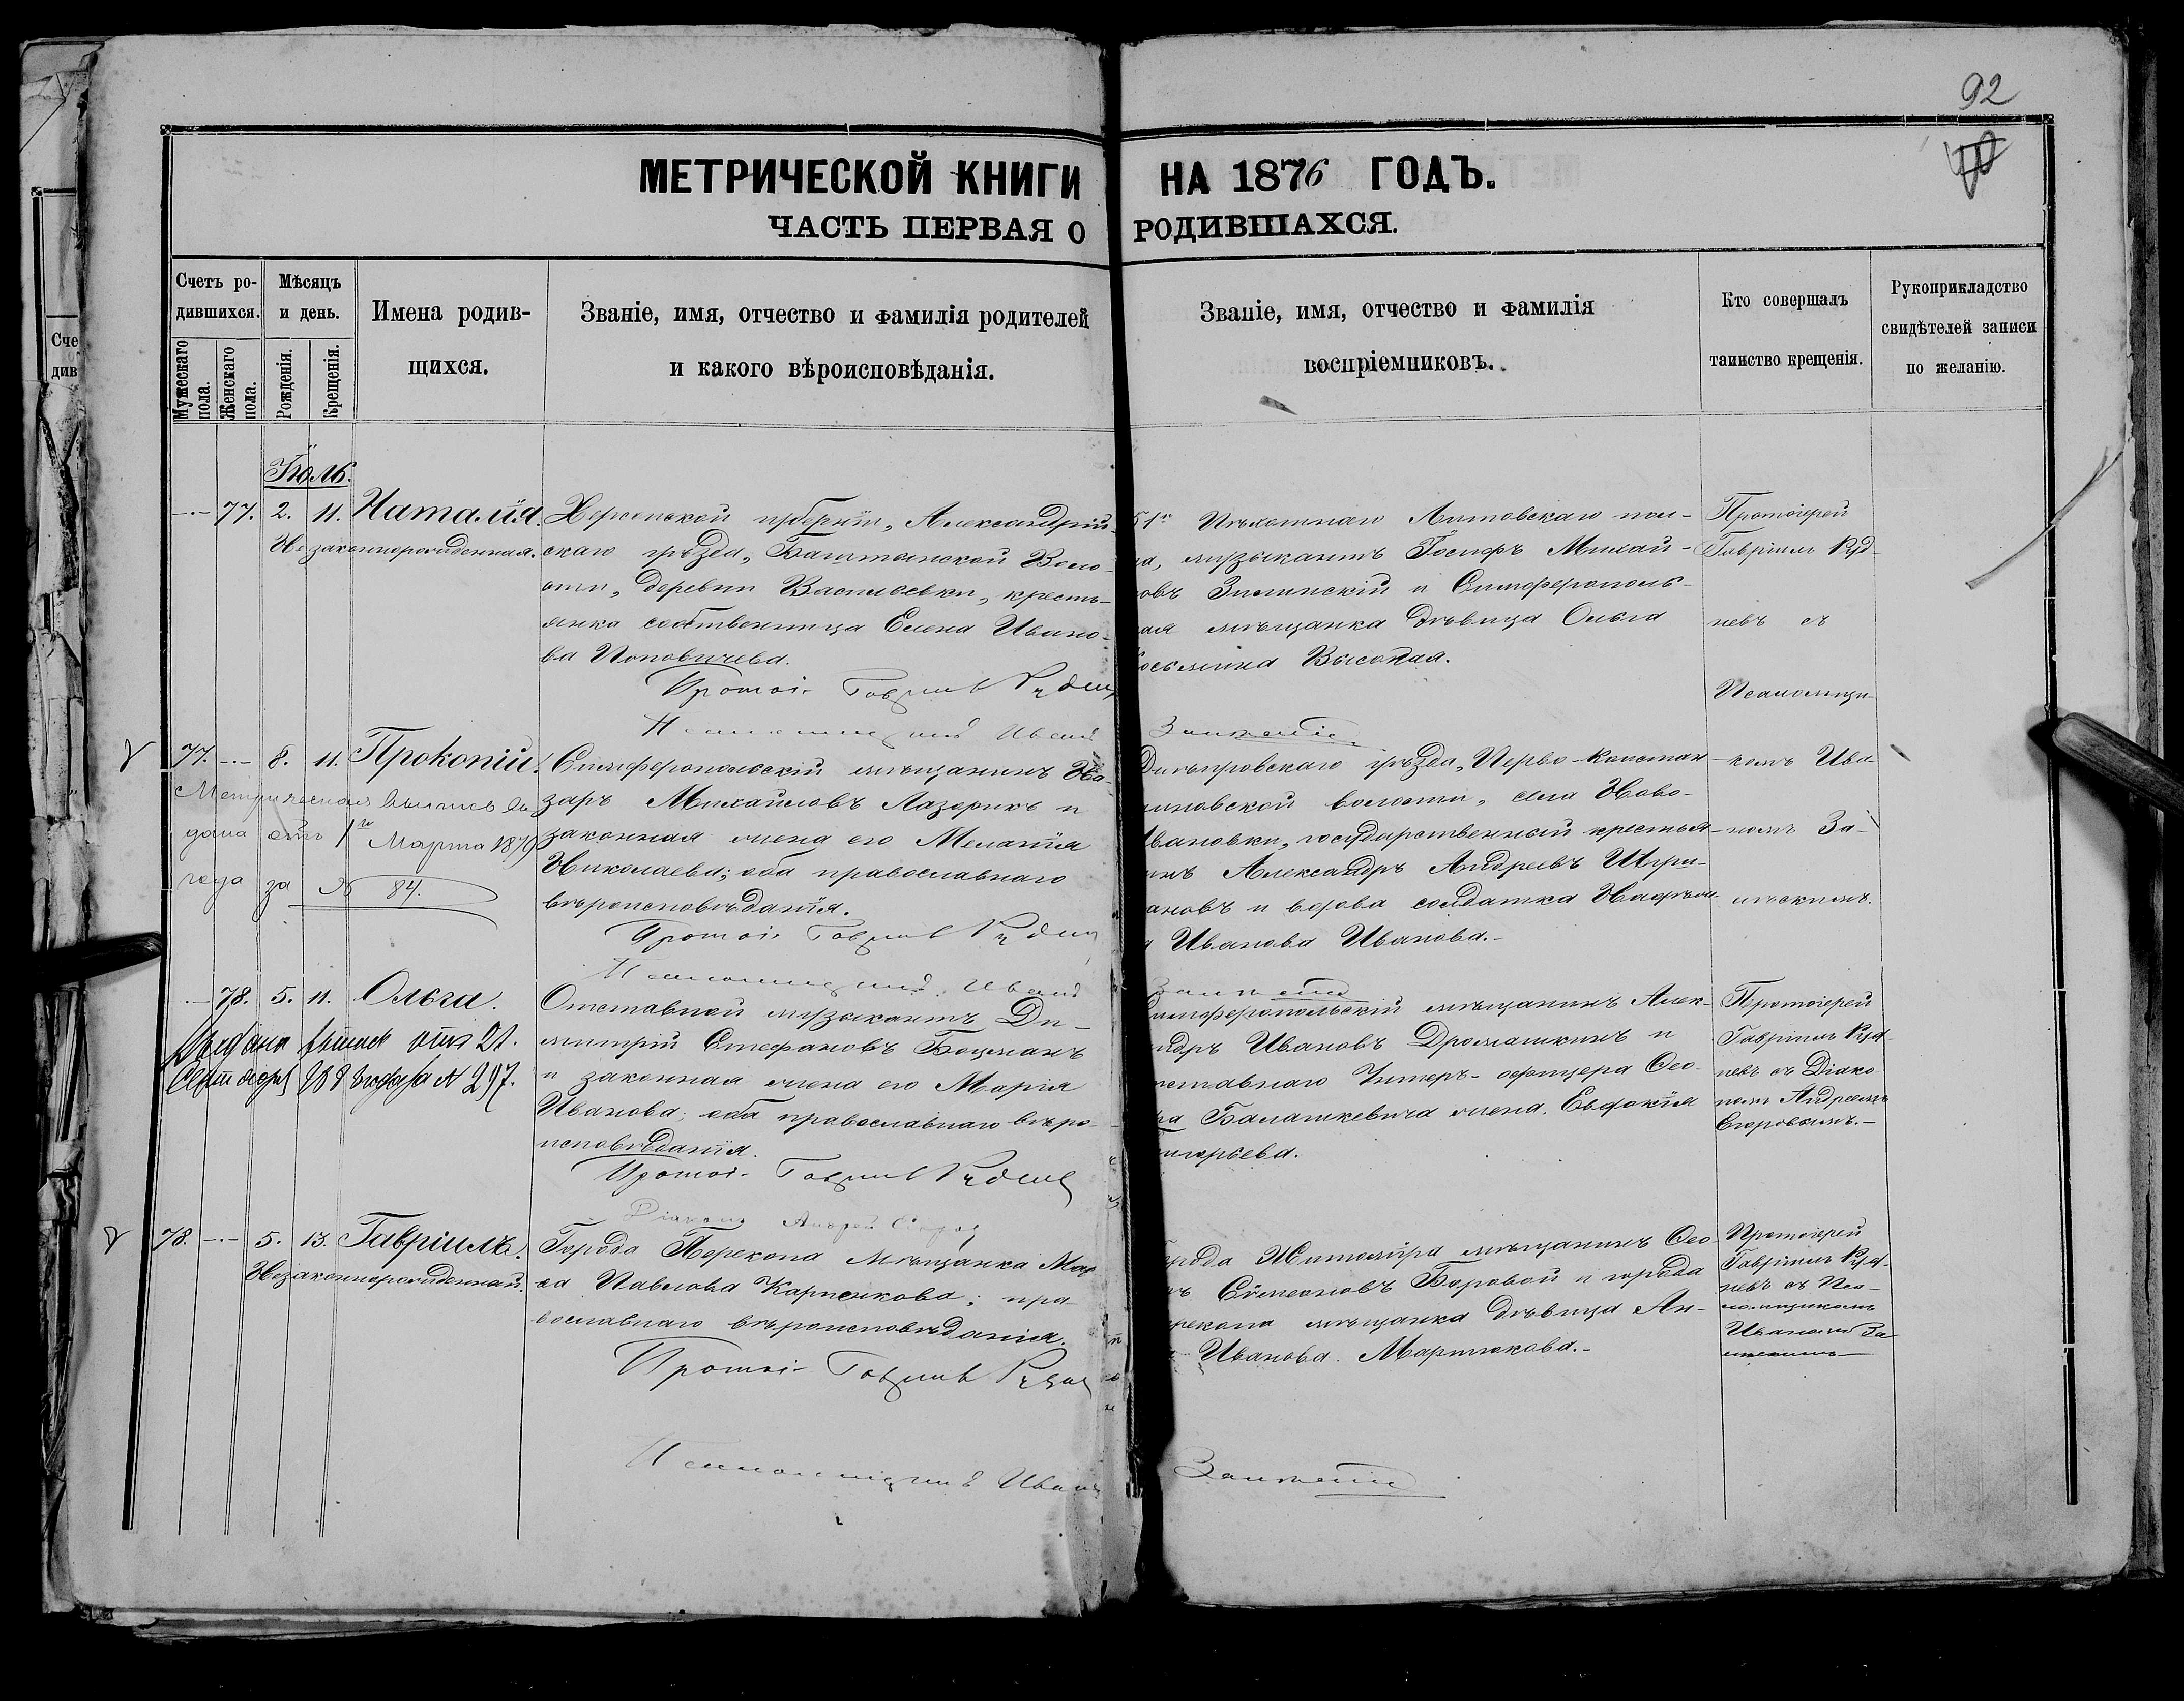 92
МЕТРИЧЕСКОЙ КНИГИ НА 1876 ГОДЪ.
ЧАСТЬ ПЕРВАЯ О РОДИВШАХСЯ.
Счетъ ро-
дившихся.
Мужескаго пола.
Женскаго пола.
Мѣсяцъ
и день.
Рожденія.
Крещенія.
Имена родив-
шихся.
Званіе, имя, отчество и фамилія родителей
и какого вѣроисповѣданія.
Званіе, имя, отчество и фамилія
воспріемниковъ.
Кто совершалъ
таинство крещенія.
Рукоприкладство
свидѣтелей записи
по желанію.
Сче
див
Іюль.
77. 2. 11. Наталія.
Незаконнорожденная.
Херсонской губерніи, Александрій-
скаго уѣзда, Баштанской Воло-
сти, деревни Васильевки, кресть-
янка собственница Елена Ивано-
ва Поповичева.
Протоі. Гавріилъ Руднев
Псаломщикъ Иванъ Занѣтскій
51го Пѣхотнаго Литовскаго пол-
ка, музыкантъ Іосифъ Михай-
ловъ Зилинскій и Симферополь-
ская мѣщанка дѣвица Ольга
Высоцкая.
Протоіерей
Гавріилъ Руд-
невъ съ
Псаломщи-
комъ Ива-
номъ За-
77. 8. 11. Прокопій.
Метрическая выпись вы-
дана отъ 1го Марта 1879
года за № 84.
Симферопольскій мѣщанинъ На-
заръ Михайловъ Лазорикъ и
законная жена его Меланія
Николаева; оба православнаго
вѣроисповѣданія.
Протоі. Гавріилъ Руднев
Псаломщикъ Иванъ
Днѣпровскаго уѣзда, Перво-Констан-
тиновской волости, села Ново-
Ивановки, государственный крестья-
нинъ Александръ Андреевъ
и вдова солдатка
Иванова Иванова.
78. 5. 11. Ольга.
Выдана выпись отъ 21.
№ 297.
Отставной музыкантъ Ди-
митрій Стефановъ Боцманъ
и законная жена его Марія
Иванова; оба православнаго вѣро-
исповѣданія.
Протоі. Гавріилъ Руднев
Діаконъ Андрей Егоров
Симферопольскій мѣщанинъ Алек-
сандръ Ивановъ Дромашкинъ и
отставнаго Унтеръ-офицера Ѳео-
Балашкевича жена Евдокія
Григорьева.
Протоіерей
Гавріилъ Руд-
невъ съ Діако
номъ Андреемъ
Егоровымъ.
78. 5. 13. Гавріилъ.
Незаконнорожденный.
Города Перекопа мѣщанка Мар
Павлова Карпенкова; пра-
вославнаго вѣроисповѣданія.
Протоі. Гавріилъ Руднев
Псаломщикъ Иванъ
Города Житоміра мѣщанинъ Ѳео-
Сѵмеоновъ Боровой и города
Перекопа мѣщанка дѣвица Ан-
на Иванова Мартюкова.
Протоіерей
Гавріилъ Руд-
невъ съ Пса-
ломщикомъ
Иваномъ За